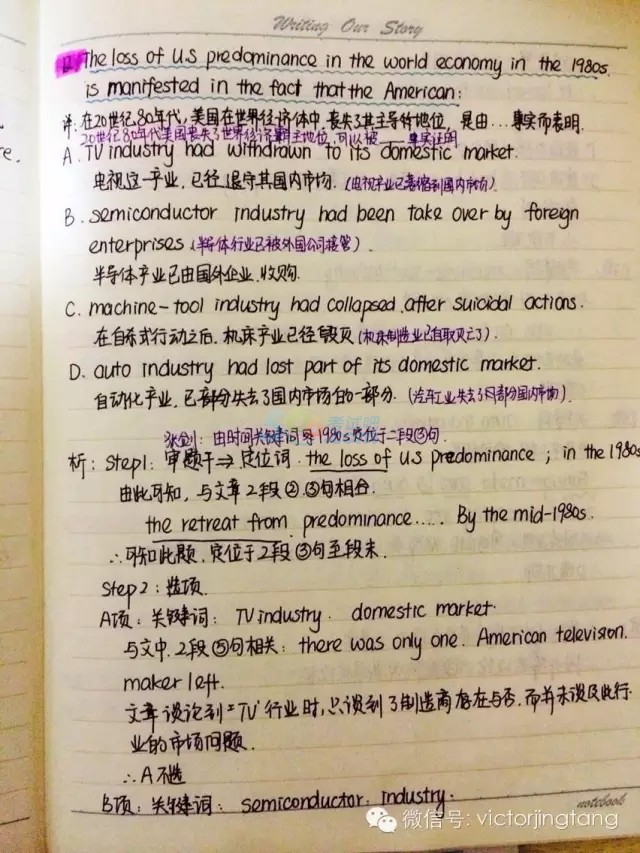 Writing Our Story
12. The loss of U.S predominance in the world economy in the 1980s
is manifested in the fact that the American:
译: 在20世纪80年代, 美国在世界经济体中丧失了其主导性地位, 是由...事实而表明.
20世纪80年代美国丧失了世界经济霸主地位, 可以被 事实证明
A. TV industry had withdrawn to its domestic market.
re.
电视这一产业, 已经退守其国内市场. (电视产业已萎缩到国内市场)
B. semiconductor industry had been take over by foreign
enterprises (半导体行业已被外国公司接管).
半导体产业已由国外企业收购.
C. machine-tool industry had collapsed after suicidal actions.
在自杀式行动之后, 机床产业已经毁灭 (机床制造业已自取灭亡了).
D. auto industry had lost part of its domestic market.
自动化产业, 已部分失去了国内市场的一部分. (汽车工业失去了部分国内市场).
考试吧
张剑: 由时间关键词 1980s定位于二段③句.
析: Step1: 审题干⇒定位词. the loss of US predominance ; in the 1980s
由此可知, 与文章2段②.③句相合.
the retreat from predominance..... By the mid-1980s.
∴可知此题, 定位于2段③句至段末.
Step2: 选项.
A项: 关键词: TV industry. domestic market.
与文中, 2段⑤句相关: there was only one. American television.
maker left.
文章谈论到"TV"行业时, 只谈到了制造商存在与否, 而并未谈及此行
业的市场问题.
∴ A不选
B项: 关键词: semiconductor industry.
notebook
微信号: victorjingtang